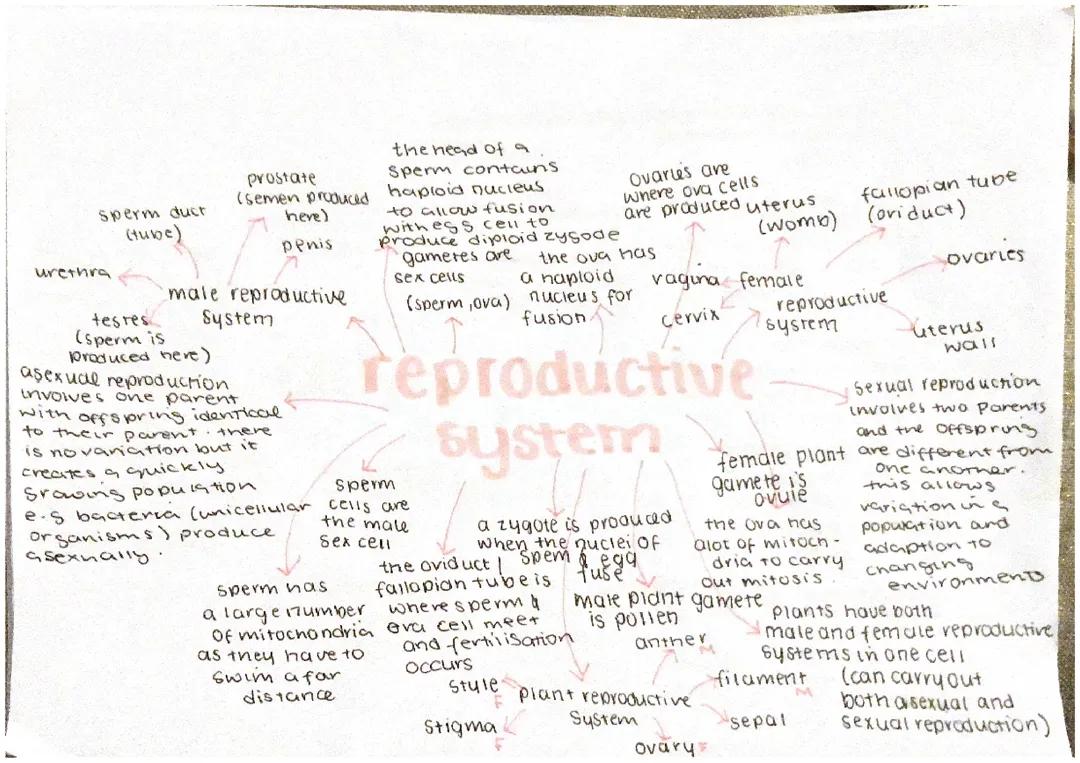 the head of a
sperm contains
haploid nucleus
to allow fusion
with egg cell to
produce diploid zygode
prostate
(semen produced
here)
sperm duct
(tube)
penis
urethra
male reproductive
system
testes
(sperm is
produced here)
gametes are
sex cells
(sperm, ova)
the ova has
a haploid
nucleus for
fusion
ovaries are
where ova cells
are produced
uterus
(womb)
fallopian tube
(oviduct)
ovaries
vagina
female
reproductive
system
cervix
uterus
wall
reproductive
system
asexual reproduction
involves one parent
with offspring identical
to their parent. there
is no variation but it
creates a quickly
growing population
e.g bacteria (unicellular
organisms) produce
asexually.
sperm
cells are
the male
sex cell
sperm has
a large number
of mitochondria
as they have to
swim a far
distance
the oviduct /
fallopian tube is
where sperm &
ova cell meet
and fertilisation
occurs
a zygote is produced
when the nuclei of
sperm & egg
fuse
female plant
gamete is
ovule
the ova has
alot of mitoch-
dria to carry
out mitosis.
sexual reproduction
involves two parents
and the offspring
are different from
one another.
this allows
variation in a
population and
adaption to
changing
environments
male plant gamete
is pollen
plants have both
male and female reproductive
systems in one cell
(can carry out
both asexual and
sexual reproduction)
anther M
filament
M
style
F
plant reproductive
system
stigma
F
sepal
ovary F